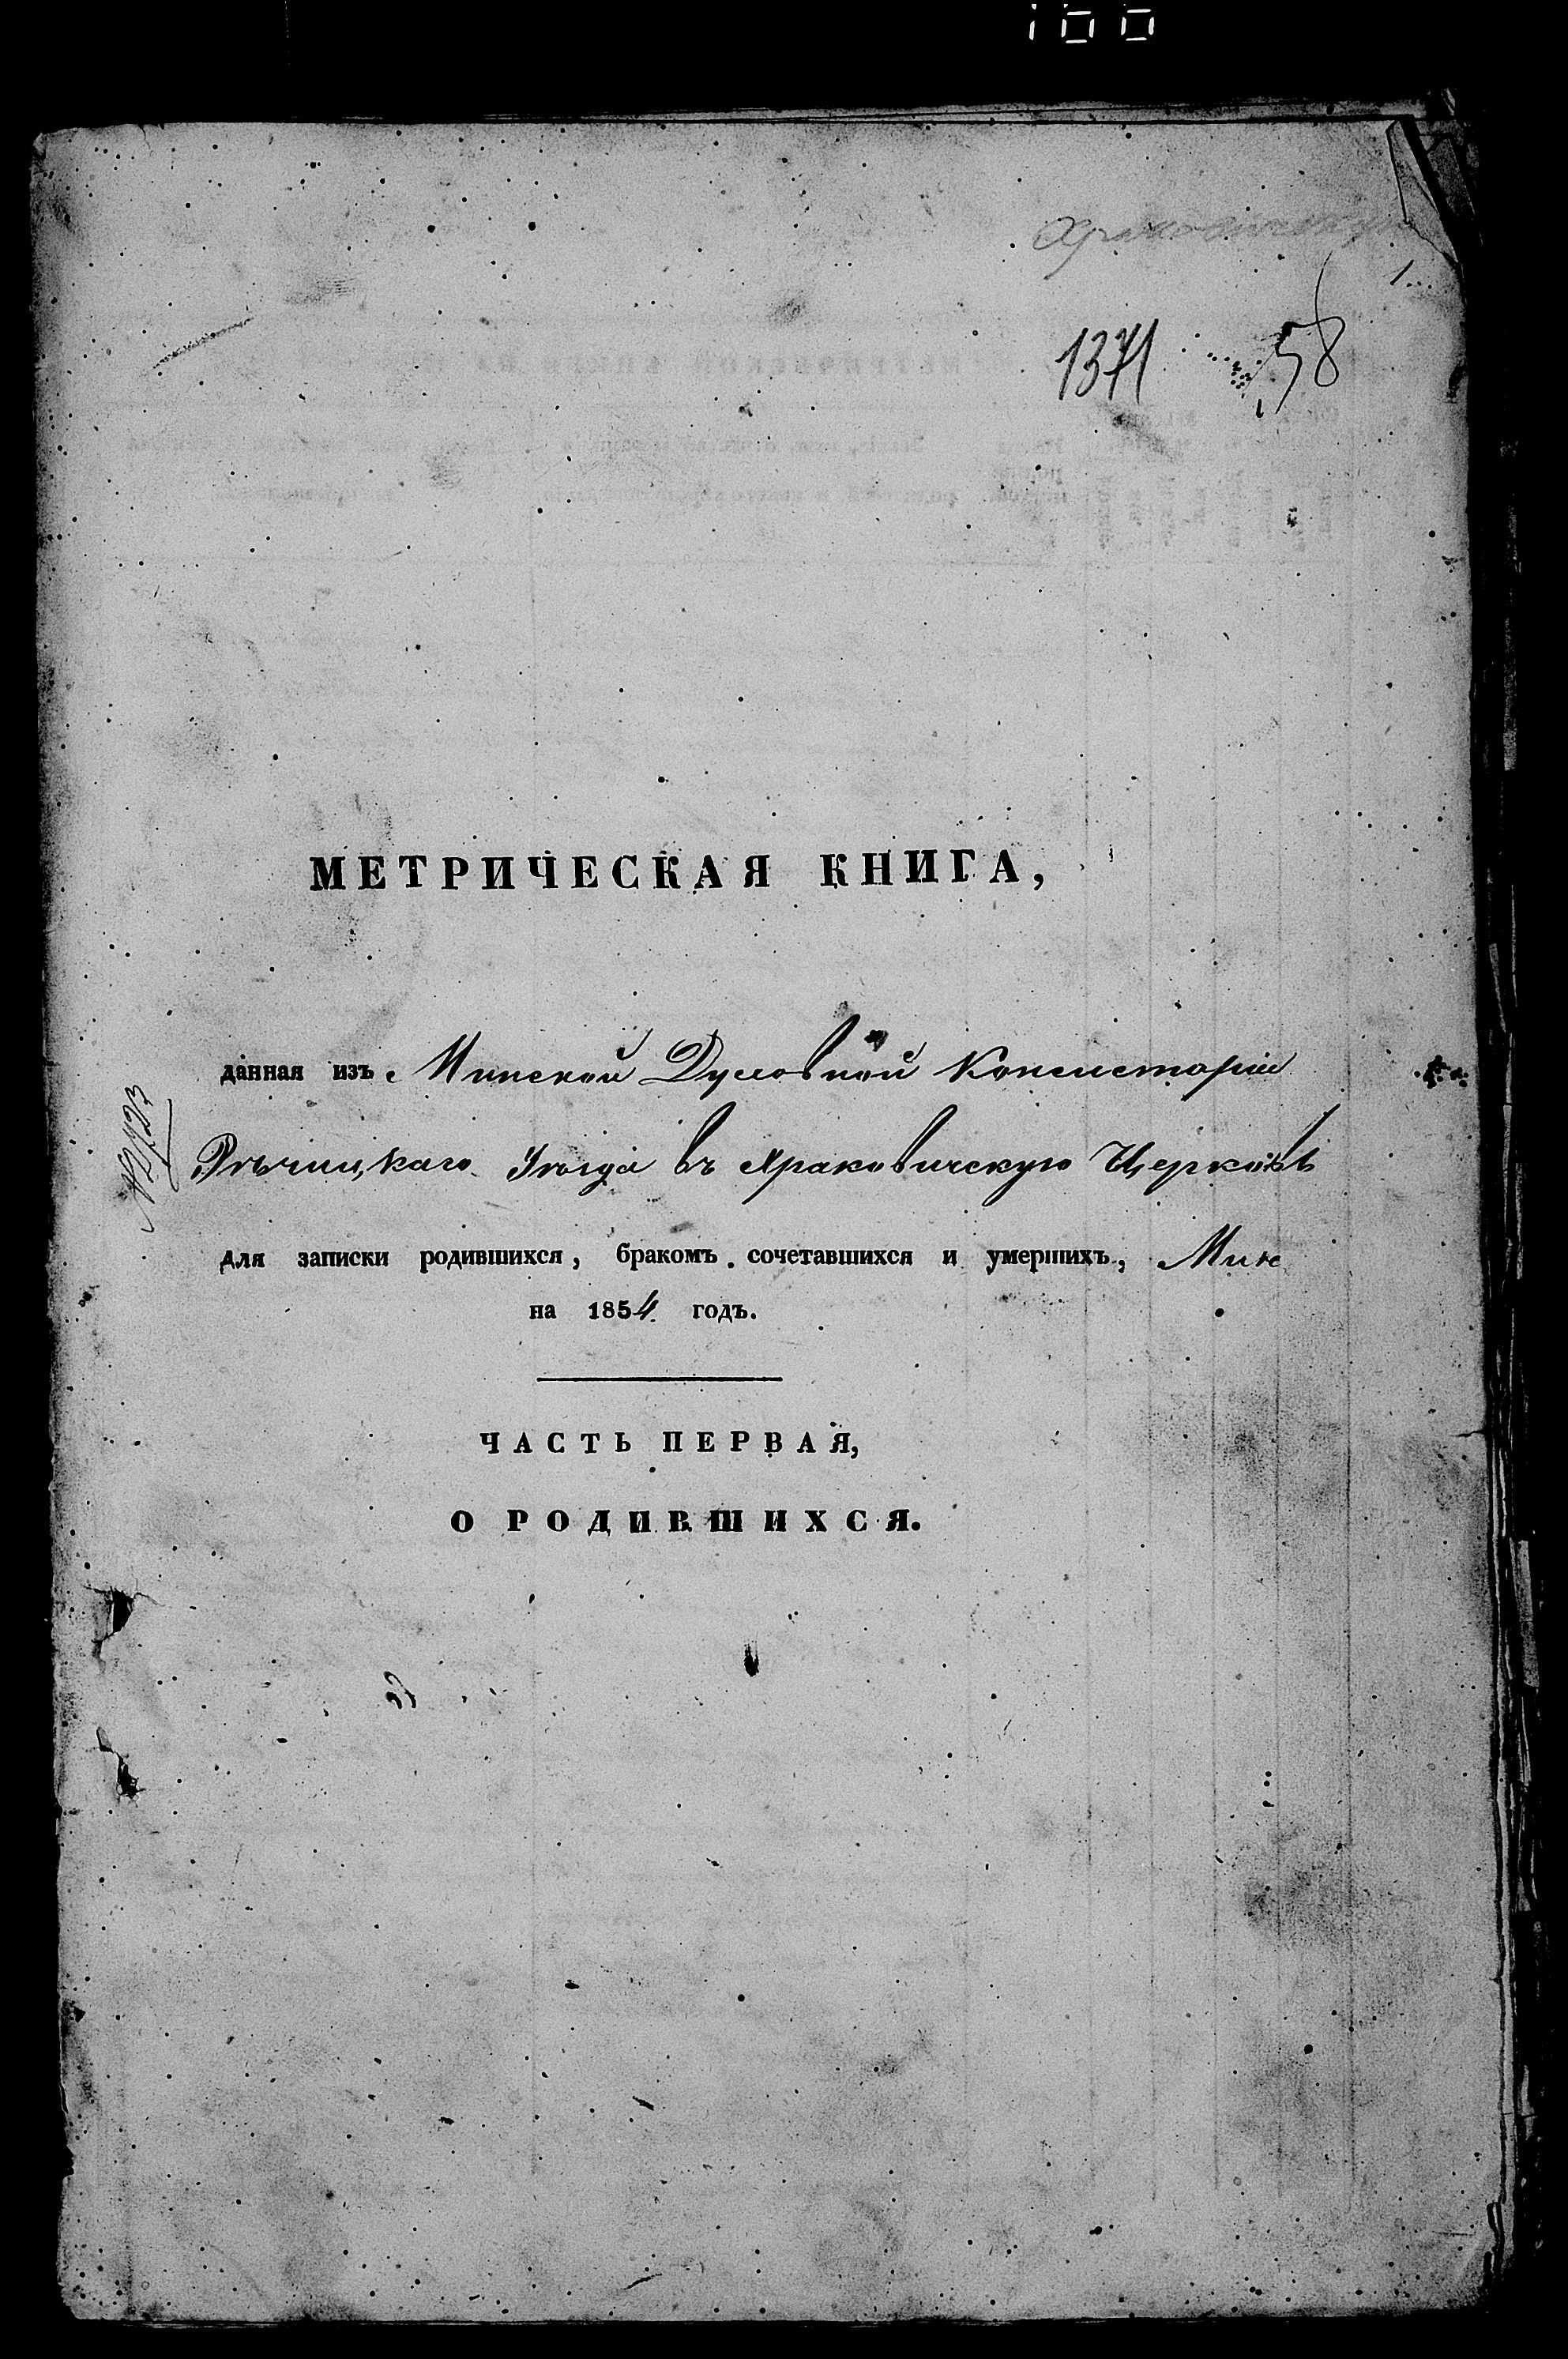 100
1371
58
МЕТРИЧЕСКАЯ КНИГА,
данная изъ Минской Духовной Консисторіи
№ 2723
Рѣчицкаго Уѣзда въ Храковичскую Церковь
для записки родившихся, бракомъ сочетавшихся и умершихъ,
на 1854 годъ.
ЧАСТЬ ПЕРВАЯ,
О РОДИВШИХСЯ.